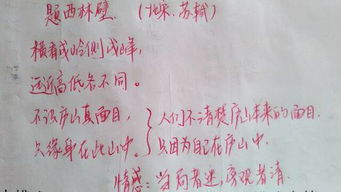 题西林壁 (北宋、苏轼)
横看成岭侧成峰,
远近高低各不同。
不识庐山真面目, 人们不清楚庐山本来的面目.
只缘身在此山中。 只因为自己在庐山中.
情感:当局者迷,旁观者清.